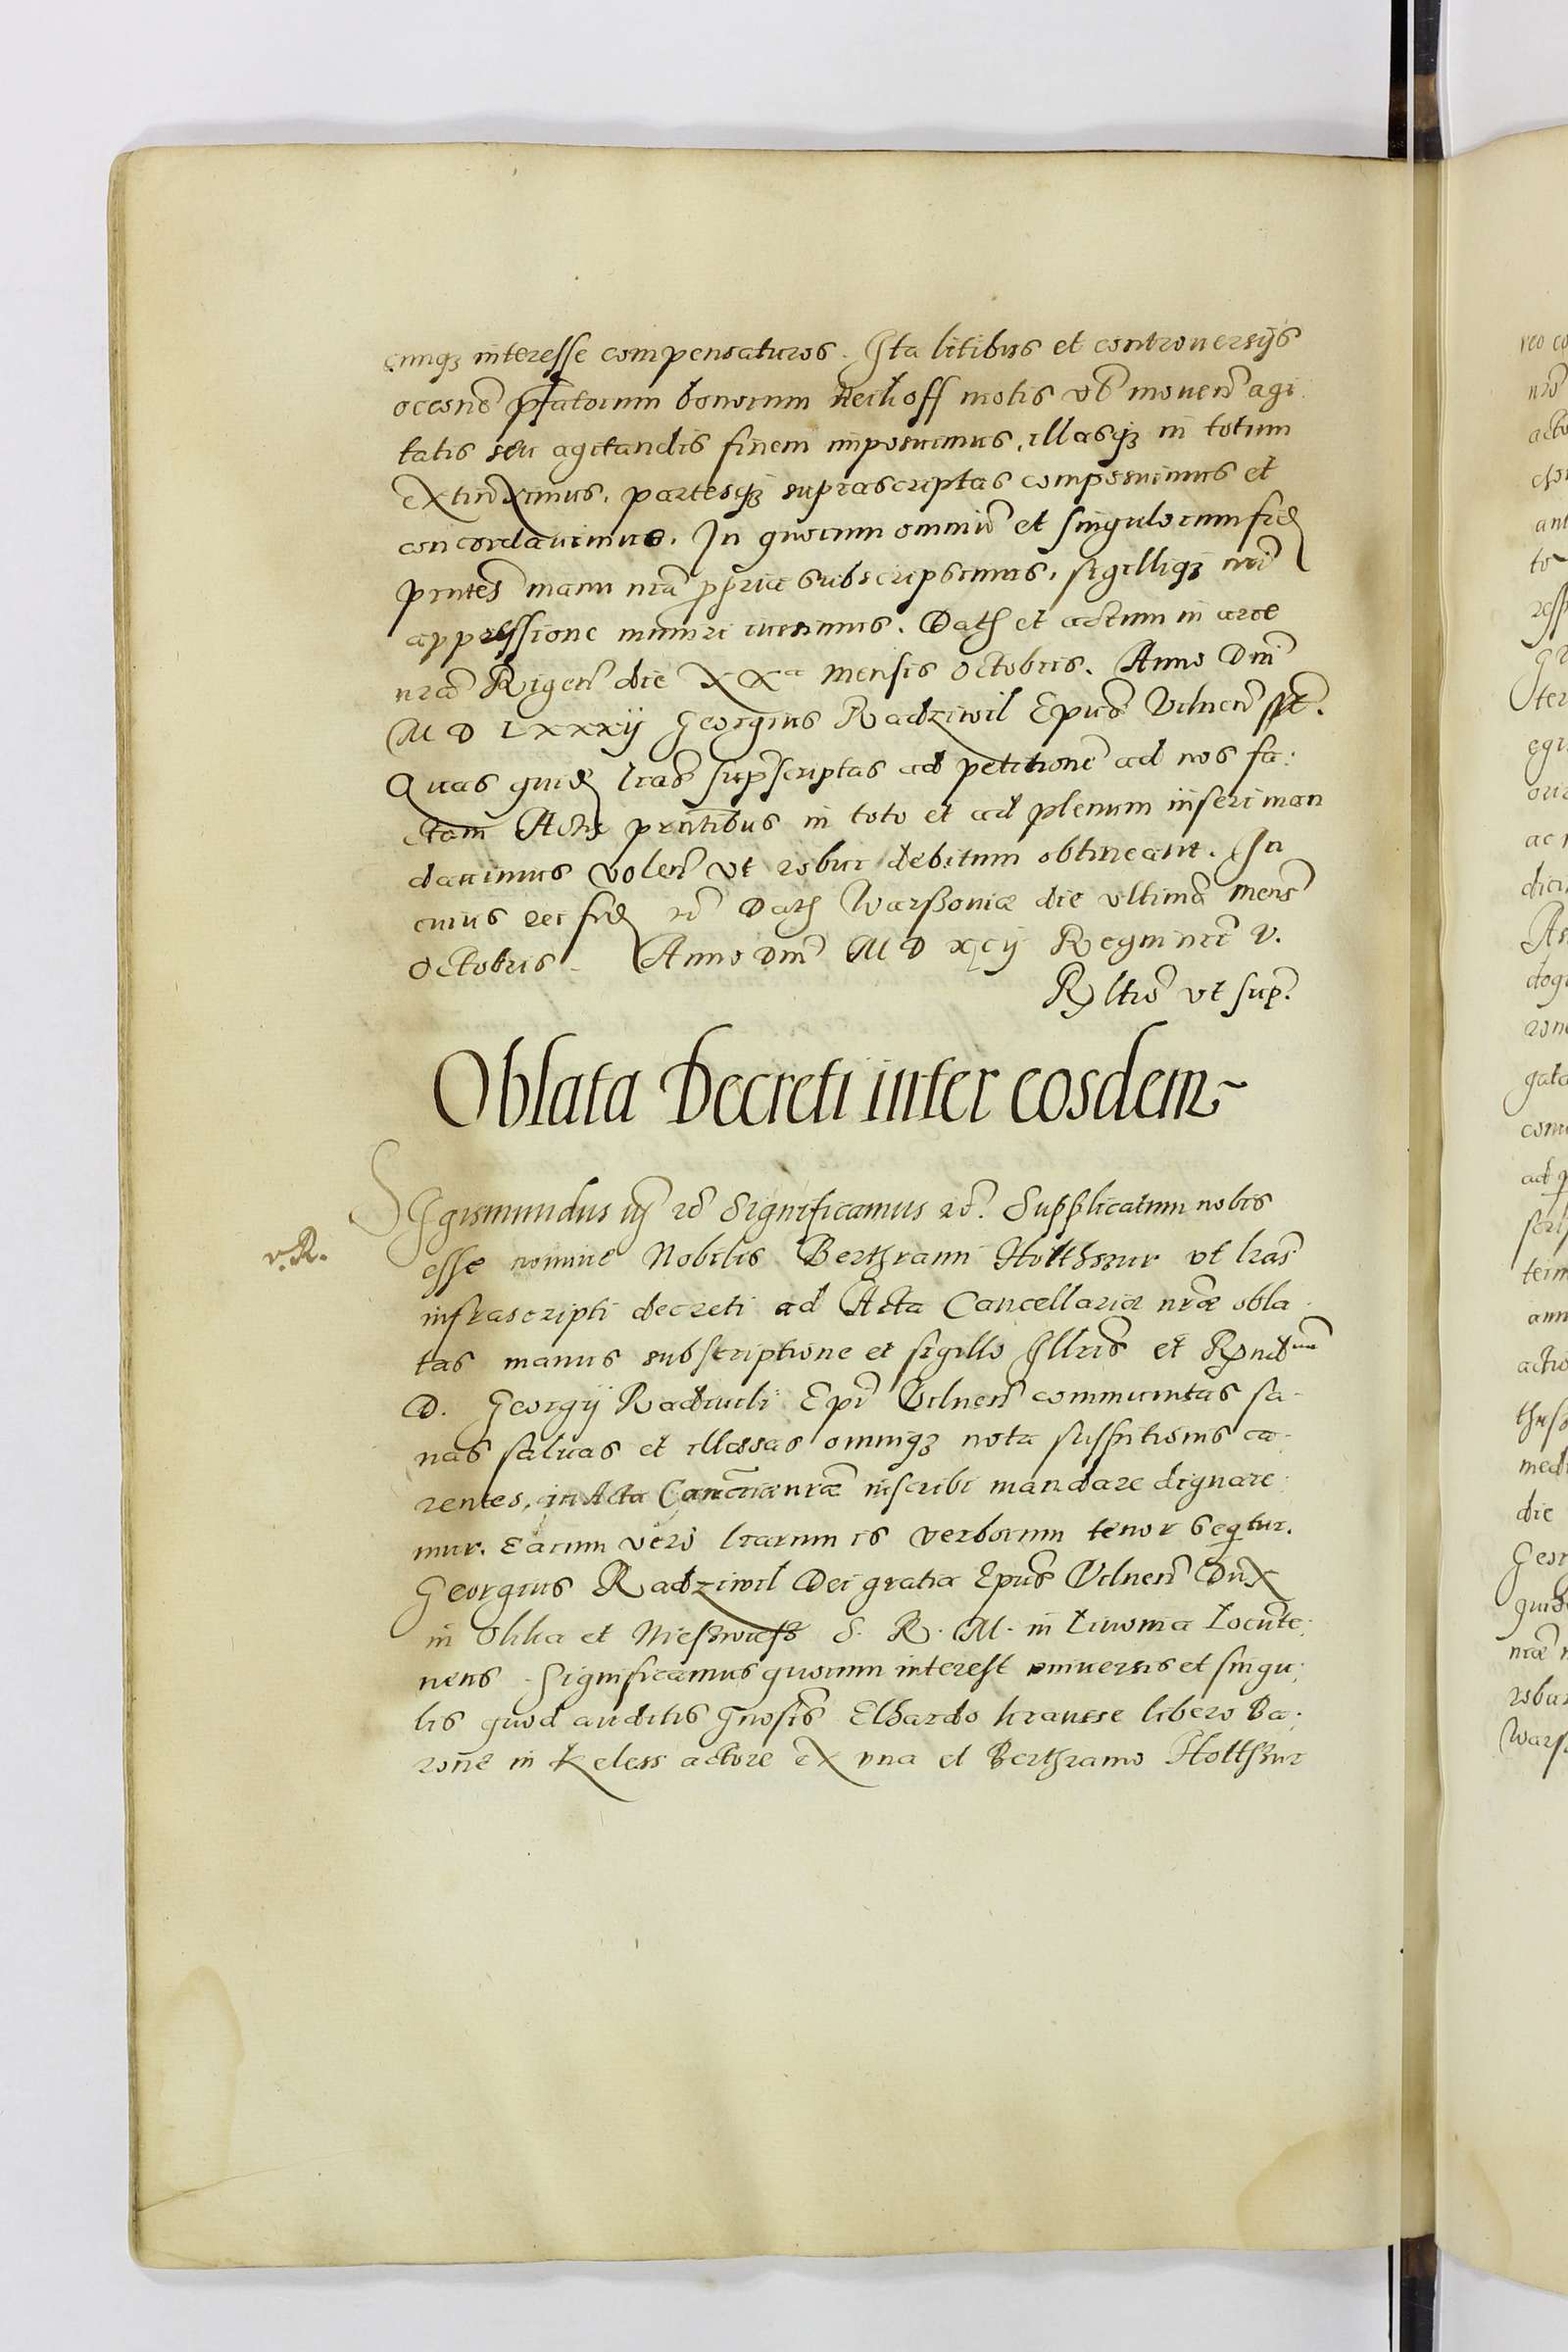 cunq3 interesse compensaturos. Ita litibus et controuersijs
occone pfatorum bonorum Neihoff motis vt mouen agi
tatis seu agitandis finem imposuimus, illasq3 in totum
extinximus, partesq3 suprascriptas composuimus et
concordauimus. In quorum omniu et singulorum fid
pntes manu nra ppria subscripsimus, sigilliq3 nri
appressione muniri iussimus. Dat et actum in arce
nra Rigen die XXa mensis Octobris. Anno Dni
M D LXXXij Georgius Radziwil Epus Vilnen sst.
Quas quid lras supscriptas ad petitione ad nos fa:
ctam Actis pntibus in toto et ad plenum inseri man
dauimus volen vt robur debitum obtineant. In
cuius rei fid rc Dat Warssouiæ die vltima Mens
Octobris. Anno Dni M D xcij Regni nri V.
R ltio vt sup.
Oblata Decreti inter eosdem
Sigismundus iij rc Significamus rc. Supplicatum nobis
v. R.
esse nomine Nobilis Berthrami Holtschur vt lras
infrascripti decreti ad Acta Cancellariæ nræ obla
tas manus subscriptione et sigillo Illris et Rndmi
D. Georgij Radiuili Epi Vilnen communitas sa
nas saluas et illæsas omniq3 nota suspitionis ca
rentes, in Acta Cancriæ nræ inscribi mandare dignare
mur. Earum vero lrarum is verborum tenor seqtur.
Georgius Radziwil Dei gratia Epus Vilnen Dux
in Olika et Niesswiess S. R. M. in Liuonia Locute
nens Significamus quorum interest vniuersis et singu
lis quod auditis Gnosis Elhardo Krausse libero Ba
rone in Keless actore ex vna et Berthramo Holtschur